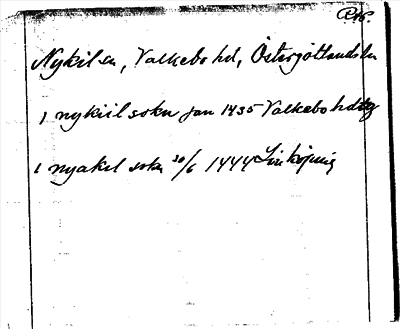 Nykil sn, Valkebo hd, Östergötlands ln
i nykiil sokn jan 1435 Valkebo hdtg
i nyakil sokn 30/6 1444 Linköping